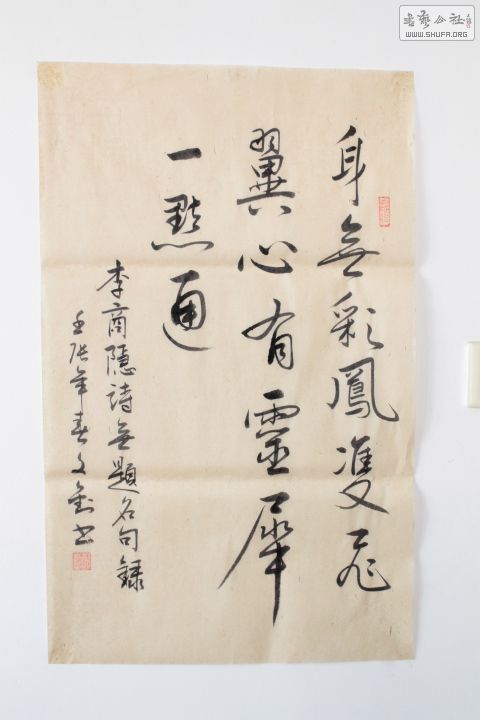 身無彩鳳雙飛
翼心有靈犀
一點通
李商隐詩無題名句録
壬辰年春文剑书
書藝公社
WWW.SHUFA.ORG